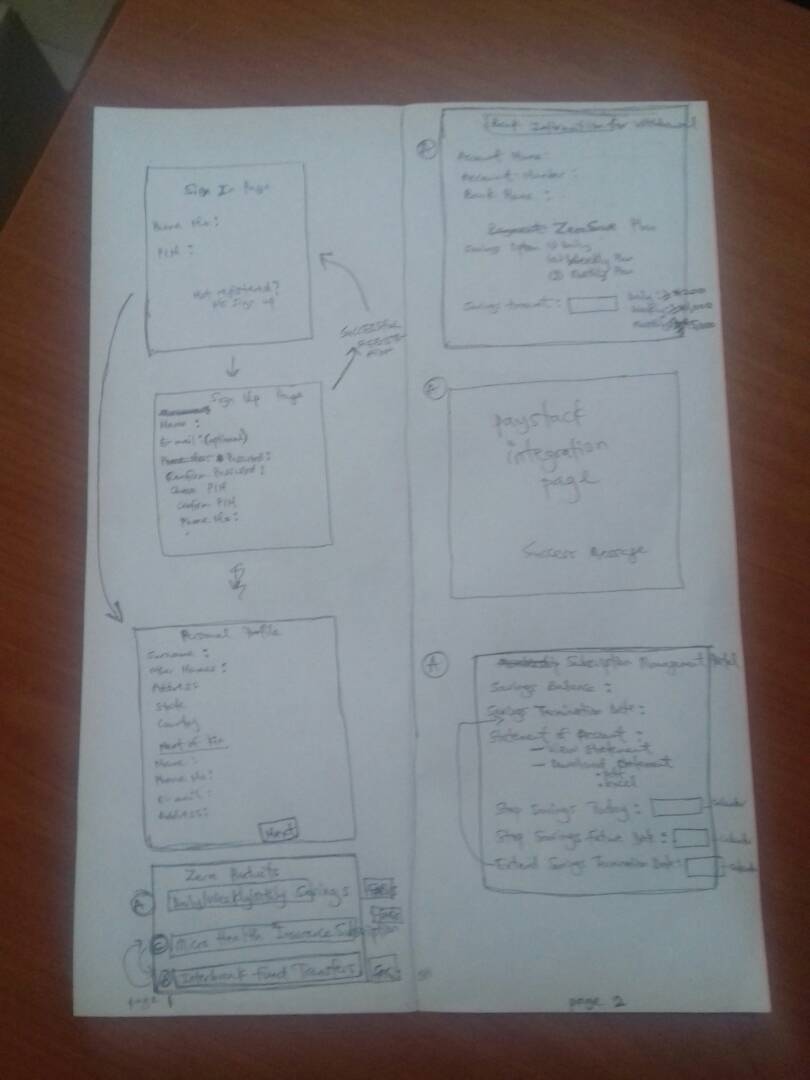 Sign In Page
Phone No :
PIN :
Not registered?
Sign up
SUCCESSFUL
Sign Up Page
Name :
E-mail : (optional)
Password :
Confirm Password :
Choose PIN
Confirm PIN
Phone No :
Personal Profile
Surname :
Other Names :
Address
State
Country
Next of Kin
Name :
Phone No :
E-mail :
Address :
Next
Zero Products
A Daily/Weekly/Mthly Savings
C Micro Health Insurance Subscription
B Interbank Fund Transfers
page 1
A
Bank Information for Withdrawal
Account Name :
Account Number :
Bank Name :
ZeroSave Plan
Savings Option Daily
Weekly Plan
Monthly Plan
Savings Amount :
Daily :
Weekly :
Monthly
A
paystack
integration
page
Success Message
A
Subscription Management Portal
Savings Balance :
Savings Termination Date :
Statement of Account :
- View Statement
- Download Statement
• pdf
• Excel
Stop Savings Today : Calendar
Stop Savings Future Date : Calendar
Extend Savings Termination Date : Calendar
page 2